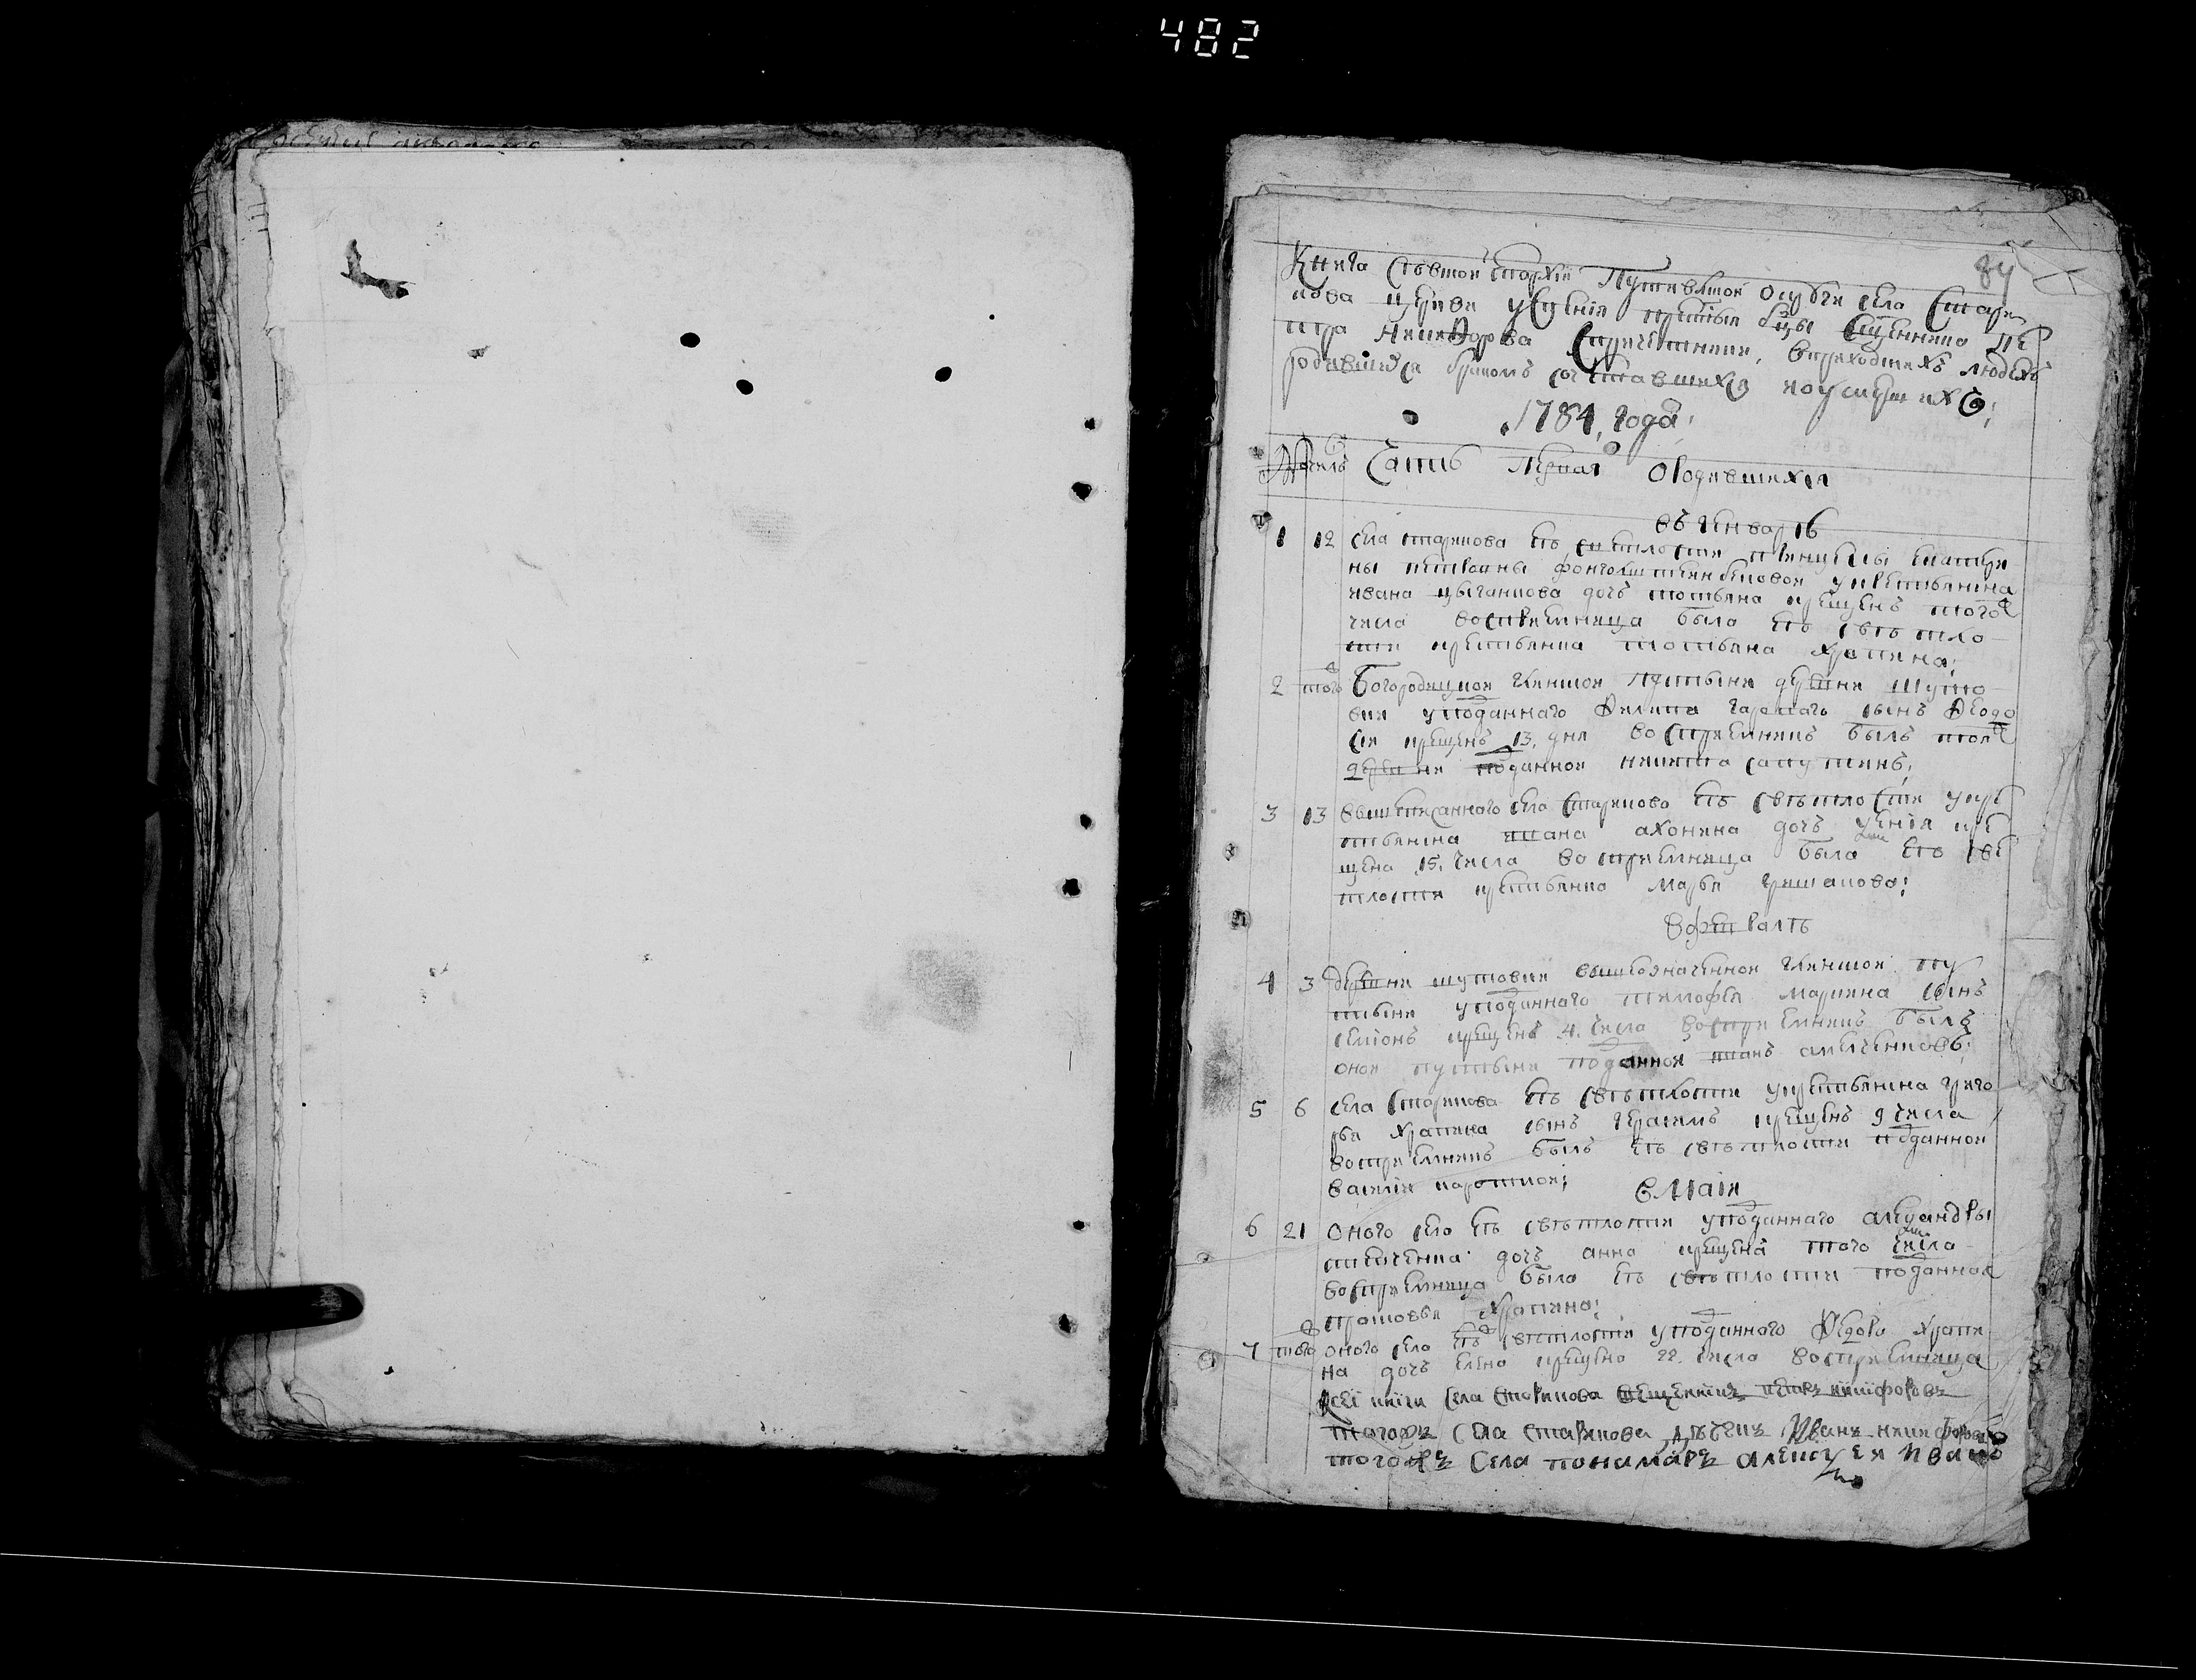 482
84
Книга Севской епархии Путивлской округи села Стари
кова церкви успения престыя бцы священника Пе
тра Никифорова с причетники, о приходских людех
родившихся браком сочетавшихся и оумерших
1784, года
число Часть первая О родившихся
въ генваре
1 12 села старикова ея светлости принцесы екатери
ны петровны фонголштейнбековой у крестьянина
ивана цыганкова дочь татьяна крещена того
числа восприемница была ея светло
сти крестьянка татьяна храпина;
2 того Богородицкой глинской пустыни деревни шуто
вки у подданного филипа гарского сынъ феодо
сия крещенъ 13, дня восприемникъ былъ той
деревни подданной никита
3 13 вышеписанного села старикова ея светлости у кре
стьянина ивана ахонина дочь ксения кре
щена 15, числа восприемница была ея све
тлости крестьянка марья гришанова;
в феврале
4 3 деревни шутовки вышеозначенной глинской пу
стыни у подданного тимофея маркина сынъ
симионъ крещенъ 4, числа восприемникъ былъ
оной пустыни подданной иванъ алексенковъ;
5 6 села старикова ея светлости у крестьянина григо
рья храпина сынъ герасимъ крещенъ 9 числа
восприемникъ былъ ея светлости подданной
василий короткой;
в маии
6 21 оного села ея светлости у подданного александры
дочь анна крещена того числа
восприемница была ея светлости подданная
прасковья храпина;
7 того оного села ея светлости у подданного федора храпи
на дочь елена крещена 22, числа восприемница
к сей книги села старикова священникъ петръ никифоровъ
тогожъ села старикова дьячекъ иванъ никифоровъ
тогожъ села понамаръ алексей иванов